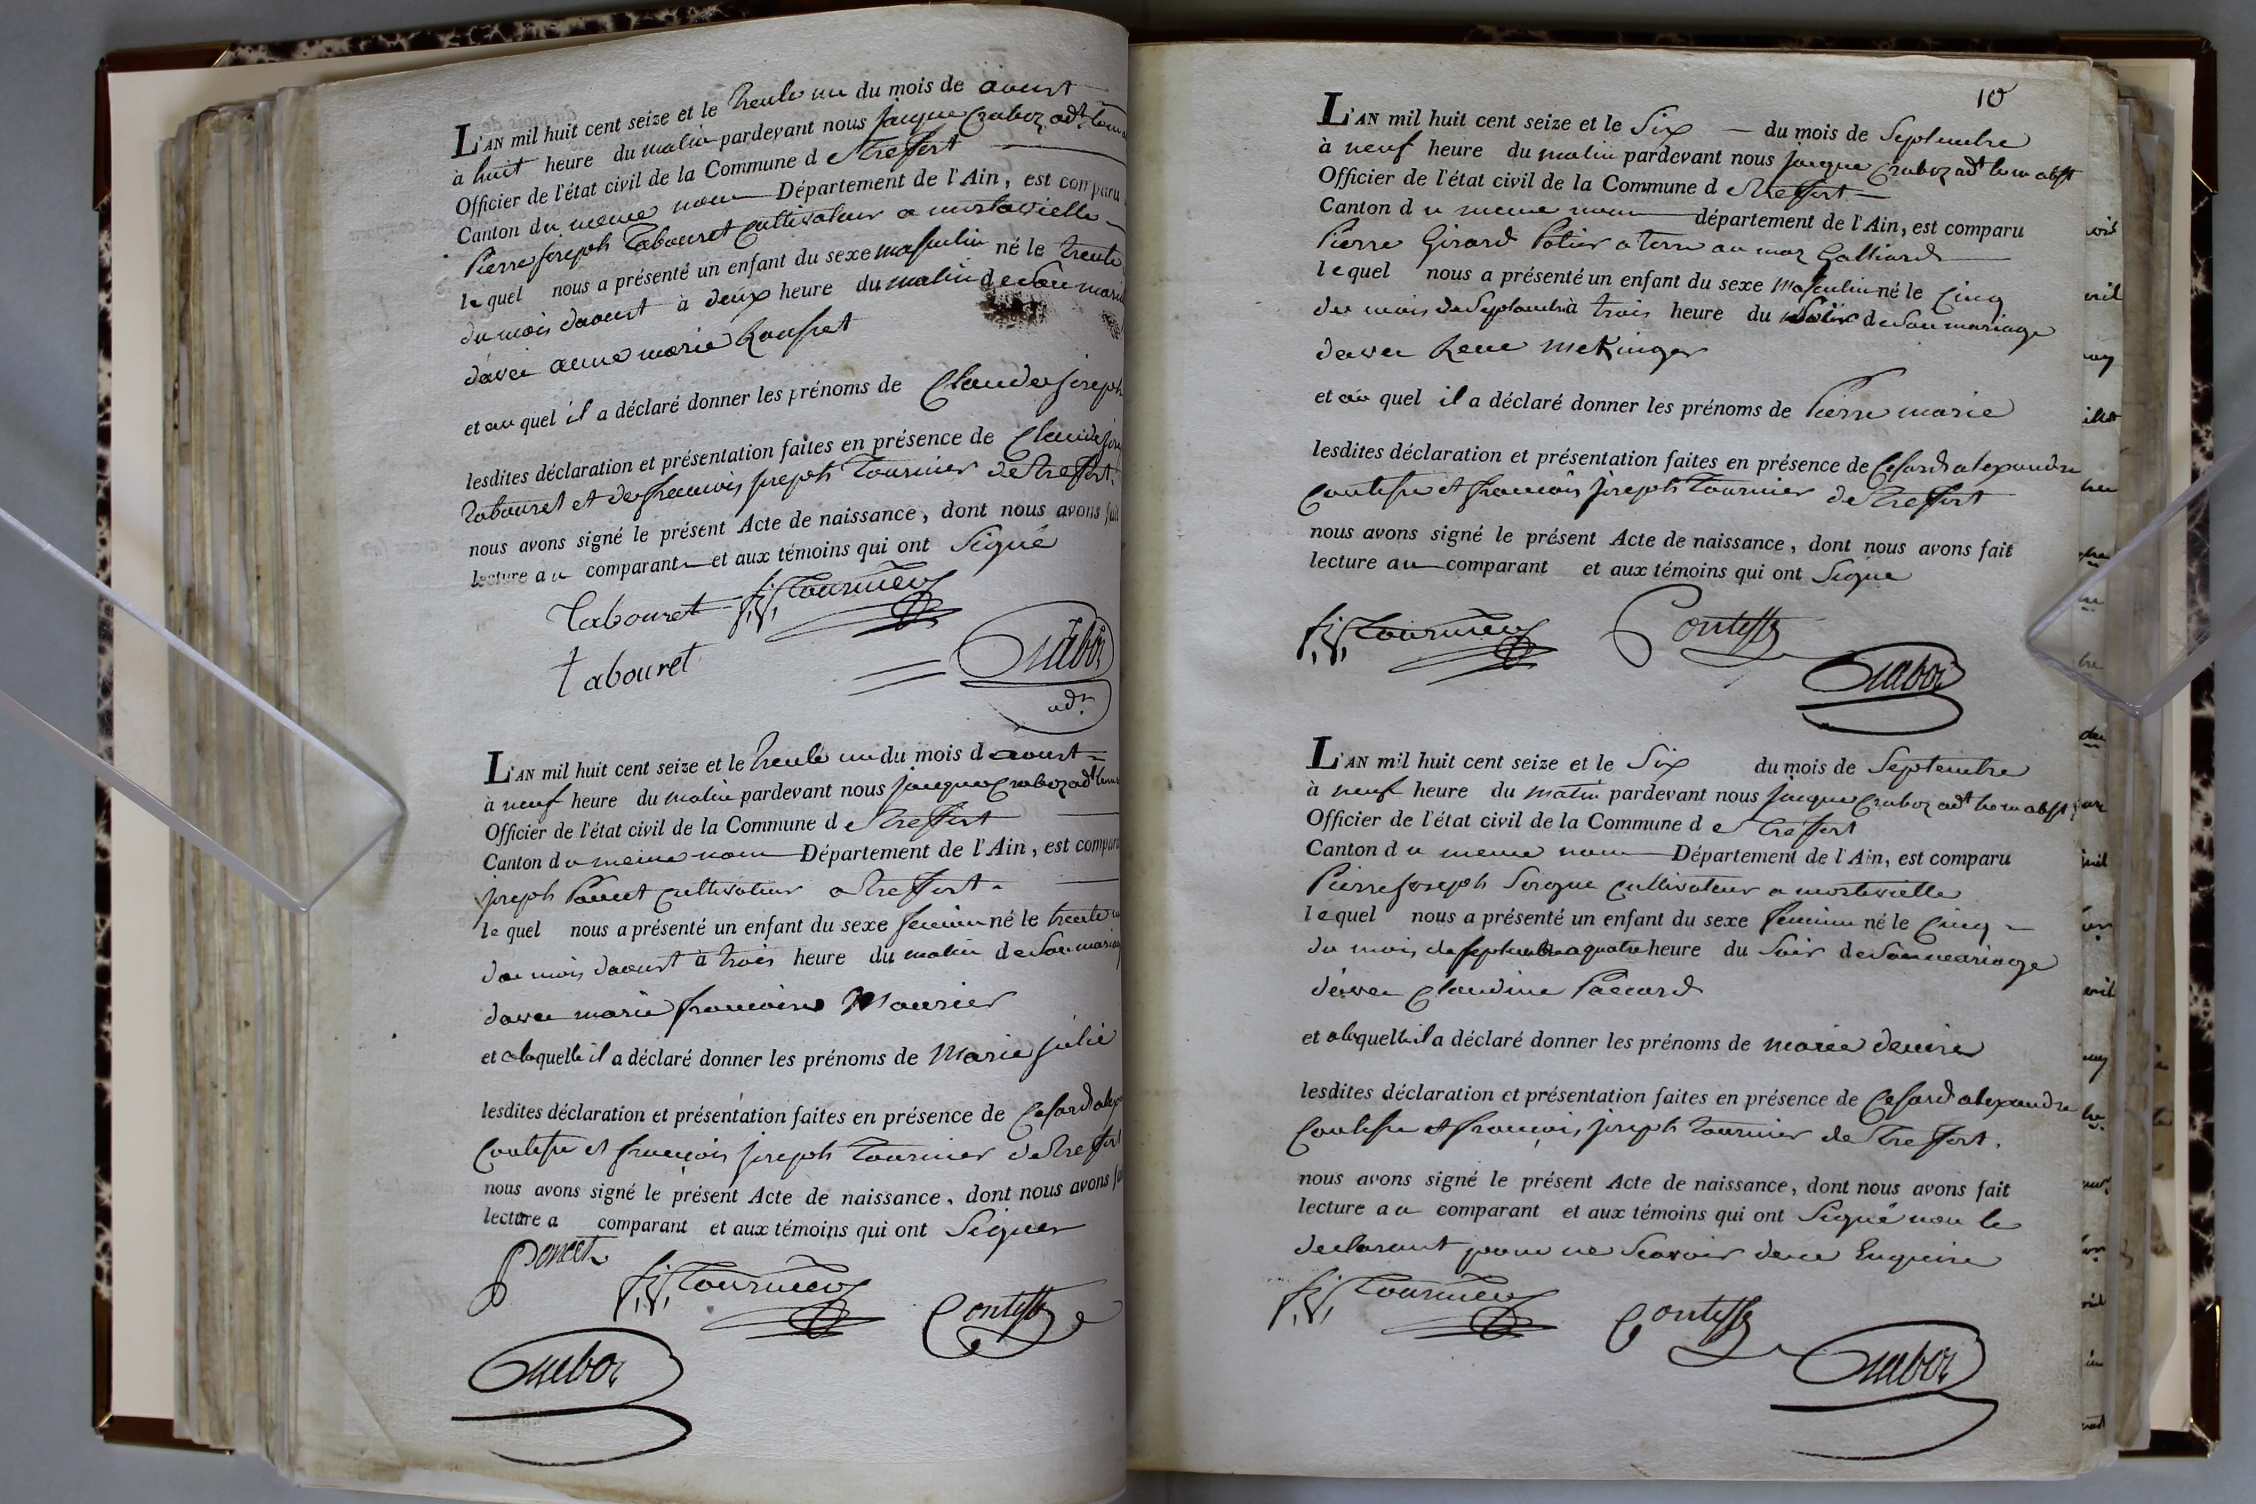 L'AN mil huit cent seize et le trente un du mois de aoust
à huit heure du matin pardevant nous jacque Craboz adt
Officier de l'état civil de la Commune d e treffort
Canton du meme nom Département de l'Ain, est comparu
Pierre joseph Tabouret Cultivateur a
lequel nous a présenté un enfant du sexe masculin né le trente
du mois daoust à deux heure du matin de Son mariage
davec anne marie
et au quel il a déclaré donner les prénoms de Claude joseph
lesdites déclaration et présentation faites en présence de Claude
Tabouret et de françois joseph Tournier de treffort
nous avons signé le présent Acte de naissance, dont nous avons fait
lecture au comparant et aux témoins qui ont Signé
Tabouret f.j. Tournier
Tabouret
Craboz
adt
L'AN mil huit cent seize et le trente un du mois d aoust
à neuf heure du matin pardevant nous jacque Craboz adt
Officier de l'état civil de la Commune d e treffort
Canton du meme nom Département de l'Ain, est comparu
joseph Poncet Cultivateur a treffort
lequel nous a présenté un enfant du sexe feminin né le trente un
du mois daoust à trois heure du matin de Son mariage
davec marie francoise
et a laquelle il a déclaré donner les prénoms de Marie julie
lesdites déclaration et présentation faites en présence de Cesard
Contesse et françois joseph Tournier de treffort
nous avons signé le présent Acte de naissance, dont nous avons
lecture a comparant et aux témoins qui ont Signer
Poncet
f.j. Tournier Contesse
Craboz
10
L'AN mil huit cent seize et le Six du mois de Septembre
à neuf heure du matin pardevant nous jacque Craboz adt
Officier de l'état civil de la Commune d e treffort
Canton d u meme nom département de l'Ain, est comparu
Pierre Girard Potier a terre au maz Galliard
lequel nous a présenté un enfant du sexe Masculin né le Cinq
du mois de Septembre à trois heure du Soir de Son mariage
davec Rene
et au quel il a déclaré donner les prénoms de Pierre marie
lesdites déclaration et présentation faites en présence de Cesard alexandre
Contesse et françois joseph Tournier de treffort
nous avons signé le présent Acte de naissance, dont nous avons fait
lecture au comparant et aux témoins qui ont Signé
f.j. Tournier Contesse
Craboz
L'AN mil huit cent seize et le Six du mois de Septembre
à neuf heure du matin pardevant nous jacque Craboz adt
Officier de l'état civil de la Commune d e treffort
Canton d u meme nom Département de l'Ain, est comparu
Pierre joseph Cultivateur a
lequel nous a présenté un enfant du sexe feminin né le Cinq
du mois de septembre a quatre heure du Soir de Son mariage
davec Claudine Paccard
et a laquelle il a déclaré donner les prénoms de marie denise
lesdites déclaration et présentation faites en présence de Cesard alexandre
Contesse et françois joseph tournier de treffort.
nous avons signé le présent Acte de naissance, dont nous avons fait
lecture a u comparant et aux témoins qui ont Signé non le
declarant pour ne Scavoir de ce Enquire
f.j. Tournier Contesse
Craboz